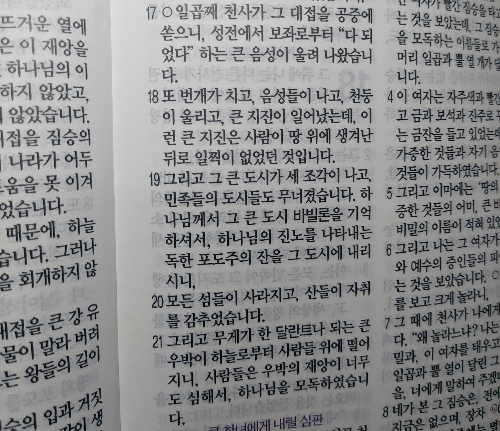 뜨거운 열에
은 이 재앙을
하나님의 이
하지 않았고,
않았습니다.
대접을 짐승의
나라가 어두
못 이겨
었습니다.
때문에, 하늘
습니다. 그러나
을 회개하지 않
대접을 큰 강 유
물이 말라 버려
는 왕들의 길이
승의 입과 거짓
17 ○일곱째 천사가 그 대접을 공중에
쏟으니, 성전에서 보좌로부터 "다 되
었다" 하는 큰 음성이 울려 나왔습니
다.
18 또 번개가 치고, 음성들이 나고, 천둥
이 울리고, 큰 지진이 일어났는데, 이
런 큰 지진은 사람이 땅 위에 생겨난
뒤로 일찍이 없었던 것입니다.
19 그리고 그 큰 도시가 세 조각이 나고,
민족들의 도시들도 무너졌습니다. 하
나님께서 그 큰 도시 바빌론을 기억
하셔서, 하나님의 진노를 나타내는
독한 포도주의 잔을 그 도시에 내리
시니,
20 모든 섬들이 사라지고, 산들이 자취
를 감추었습니다.
21 그리고 무게가 한 달란트나 되는 큰
우박이 하늘로부터 사람들 위에 떨어
지니, 사람들은 우박의 재앙이 너무
도 심해서, 하나님을 모독하였습니
다.
큰 창녀에게 내릴 심판
가 빨간 짐승을 타
는 것을 보았는데, 그 짐승
을 모독하는 이름들로 가
머리 일곱과 뿔 열 개가 달
4 이 여자는 자주색과 빨간
고 금과 보석과 진주로 꾸
는 금잔을 들고 있었는데
가증한 것들과 자기 음
것들이 가득하였습니다.
5 그리고 이마에는 "땅의
증한 것들의 어미, 큰 바
비밀의 이름이 적혀 있었
6 그리고 나는 그 여자가
와 예수의 증인들의 피에
는 것을 보았습니다. ○
를 보고 크게 놀라니,
7 그 때에 천사가 나에게
다. "왜 놀라느냐? 나는
밀과, 이 여자를 태우고
일곱과 뿔 열이 달린 그
을, 너에게 말하여 주겠
8 네가 본 그 짐승은, 전에
지금은 없으며, 장차